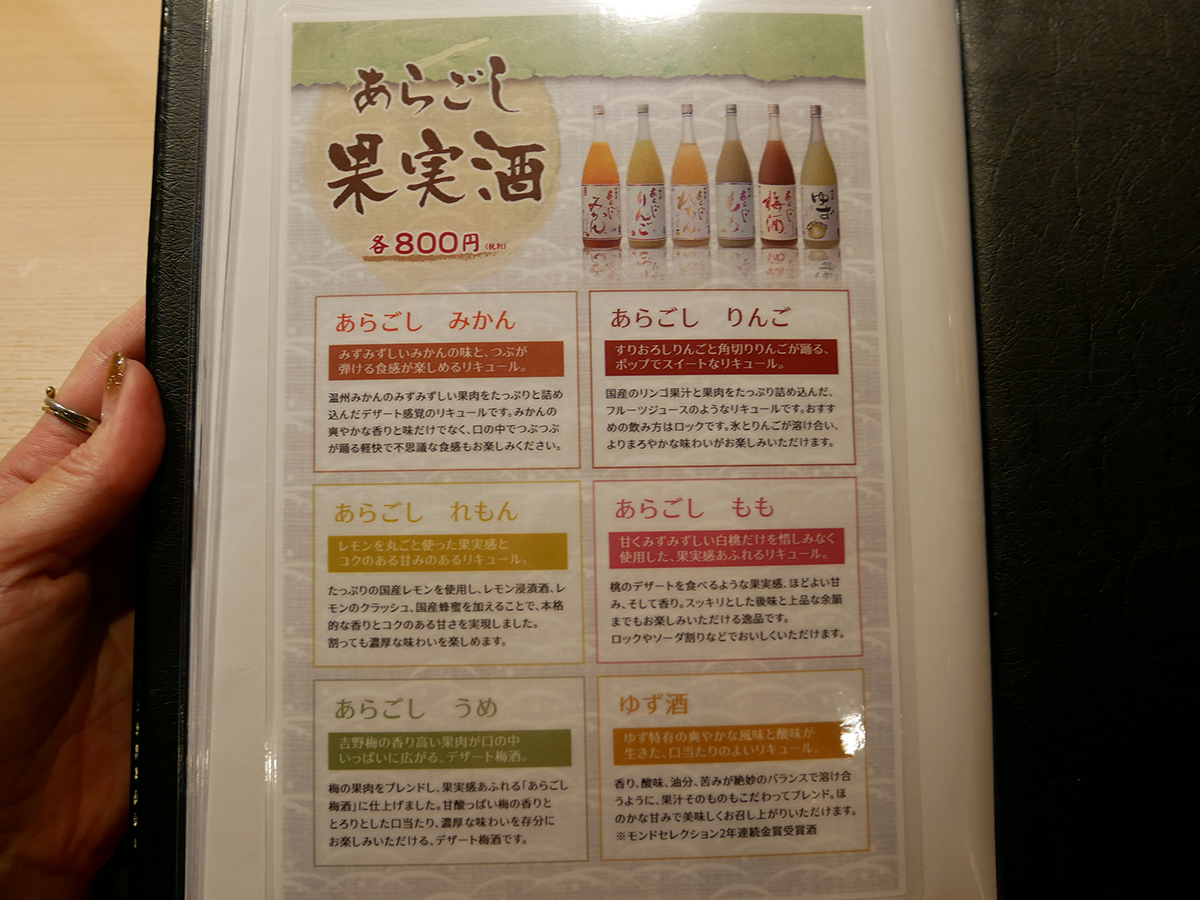 あらごし
果実酒
各800円(税別)
みかん
りんご
もも
梅酒
ゆず
あらごし みかん
みずみずしいみかんの味と、つぶが
弾ける食感が楽しめるリキュール。
温州みかんのみずみずしい果肉をたっぷりと詰め
込んだデザート感覚のリキュールです。みかんの
爽やかな香りと味だけでなく、口の中でつぶつぶ
が踊る軽快で不思議な食感もお楽しみください。
あらごし りんご
すりおろしりんごと角切りりんごが踊る、
ポップでスイートなリキュール。
国産のリンゴ果汁と果肉をたっぷり詰め込んだ、
フルーツジュースのようなリキュールです。おすす
めの飲み方はロックです。氷とりんごが溶け合い、
よりまろやかな味わいがお楽しみいただけます。
あらごし れもん
レモンを丸ごと使った果実感と
コクのある甘みのあるリキュール。
たっぷりの国産レモンを使用し、レモン浸漬酒、レ
モンのクラッシュ、国産蜂蜜を加えることで、本格
的な香りとコクのある甘さを実現しました。
割っても濃厚な味わいを楽しめます。
あらごし もも
甘くみずみずしい白桃だけを惜しみなく
使用した、果実感あふれるリキュール。
桃のデザートを食べるような果実感、ほどよい甘
み、そして香り。スッキリとした後味と上品な余韻
までもお楽しみいただける逸品です。
ロックやソーダ割りなどでおいしくいただけます。
あらごし うめ
吉野梅の香り高い果肉が口の中
いっぱいに広がる、デザート梅酒。
梅の果肉をブレンドし、果実感あふれる「あらごし
梅酒」に仕上げました。甘酸っぱい梅の香りと
とろりとした口当たり、濃厚な味わいを存分に
お楽しみいただける、デザート梅酒です。
ゆず酒
ゆず特有の爽やかな風味と酸味が
生きた、口当たりのよいリキュール。
香り、酸味、油分、苦みが絶妙のバランスで溶け合
うように、果汁そのものもこだわってブレンド。ほ
のかな甘みで美味しくお召し上がりいただけます。
※モンドセレクション2年連続金賞受賞酒